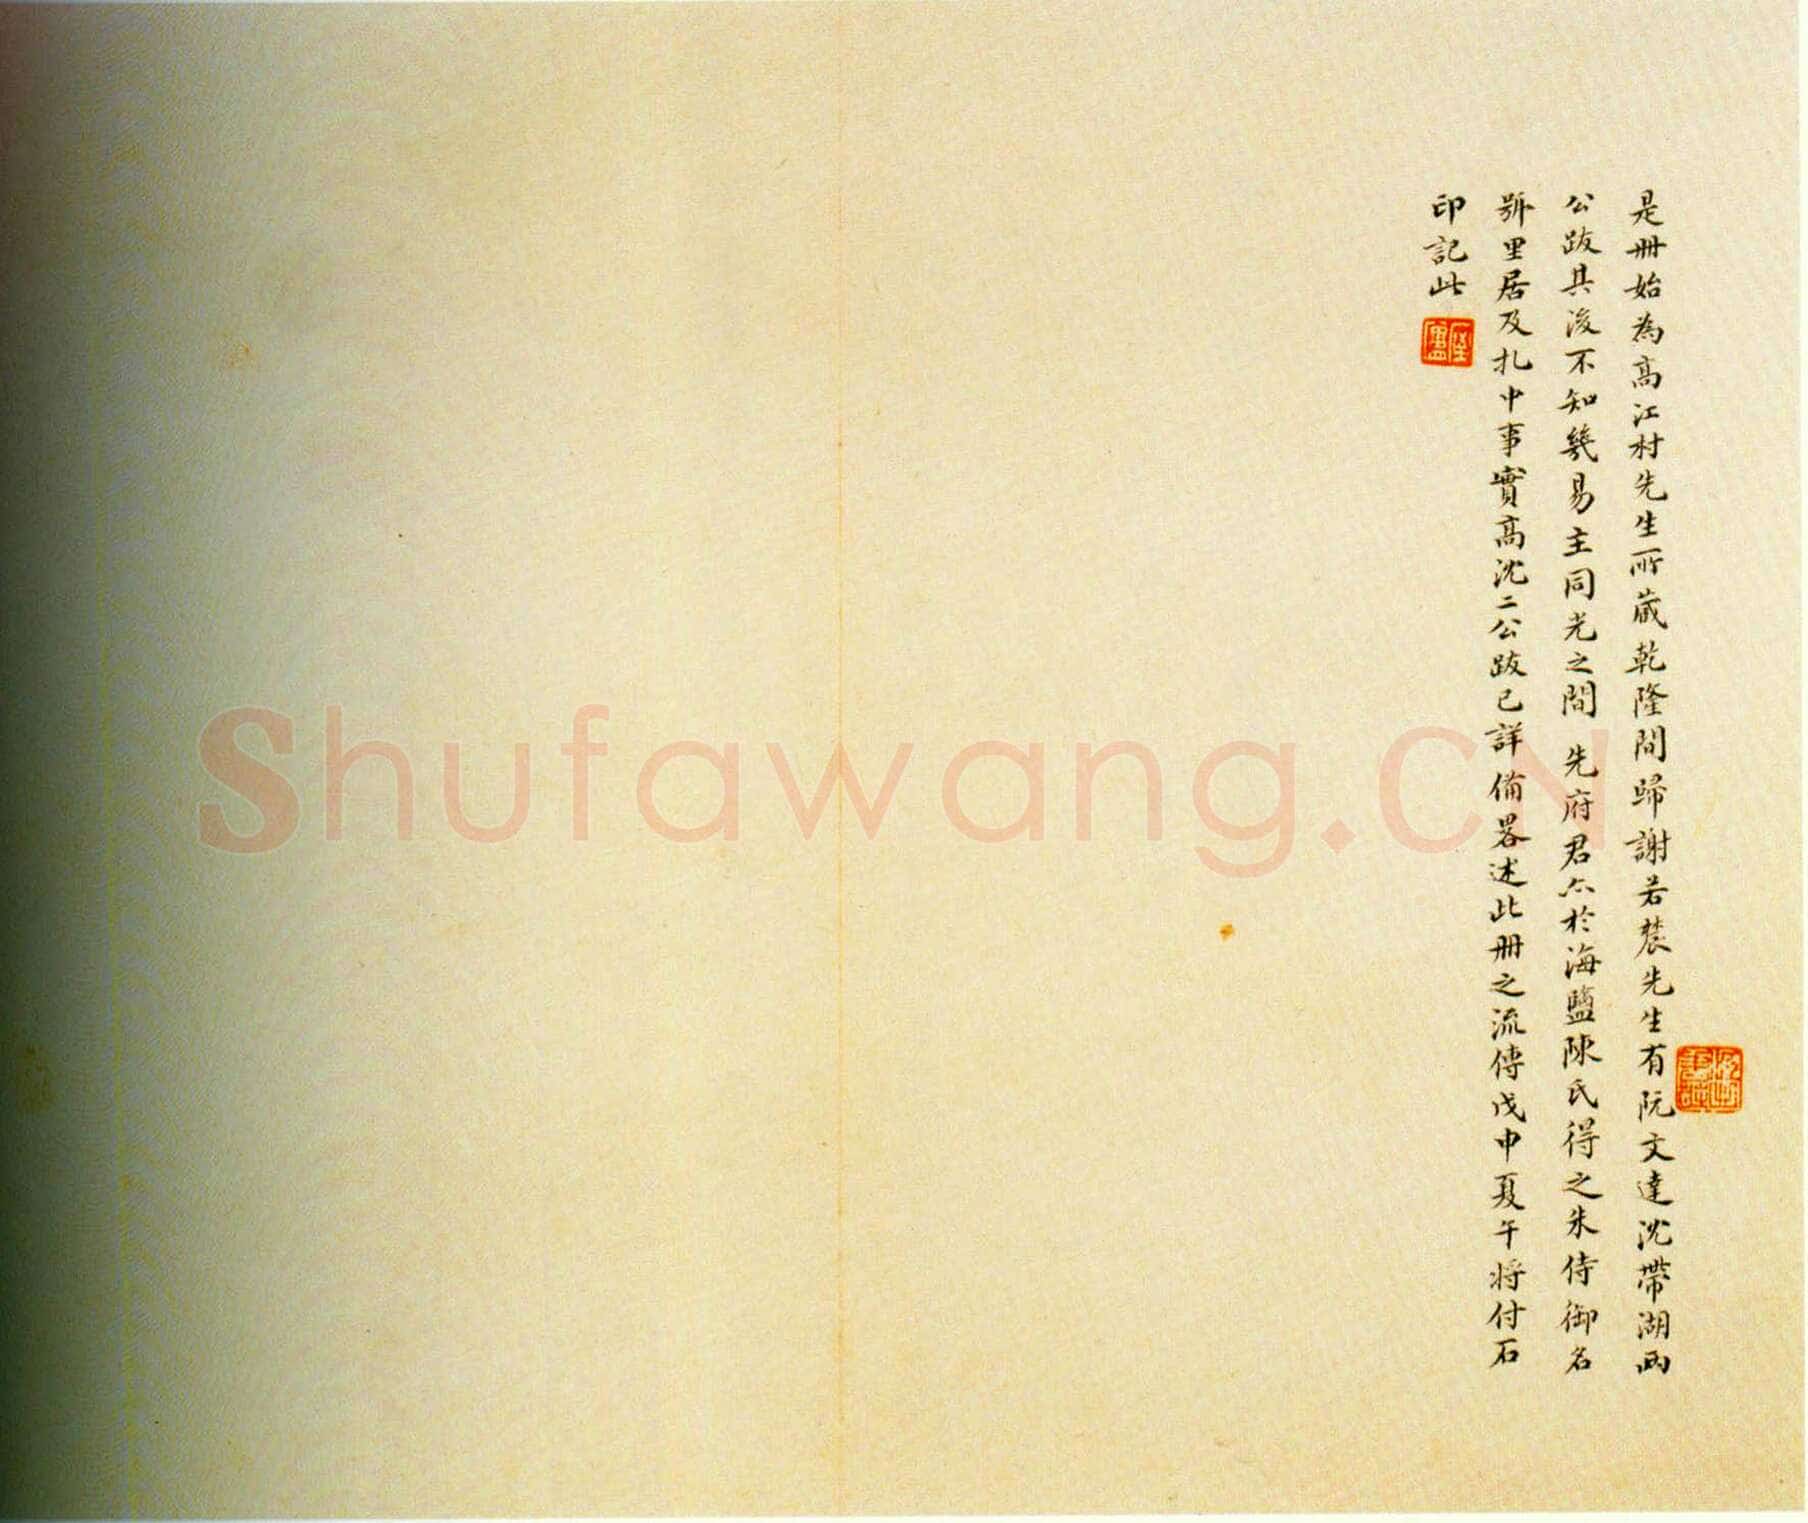 是冊始為高江村先生所蔵乾隆間歸謝若農先生有阮文達沈帶湖兩
公跋其後不知幾易主同光之間 先府君亦於海鹽陳氏得之朱侍御名
號里居及札中事實高沈二公跋已詳備畧述此冊之流傳戊申夏午將付石
印記此
Shufawang.CN